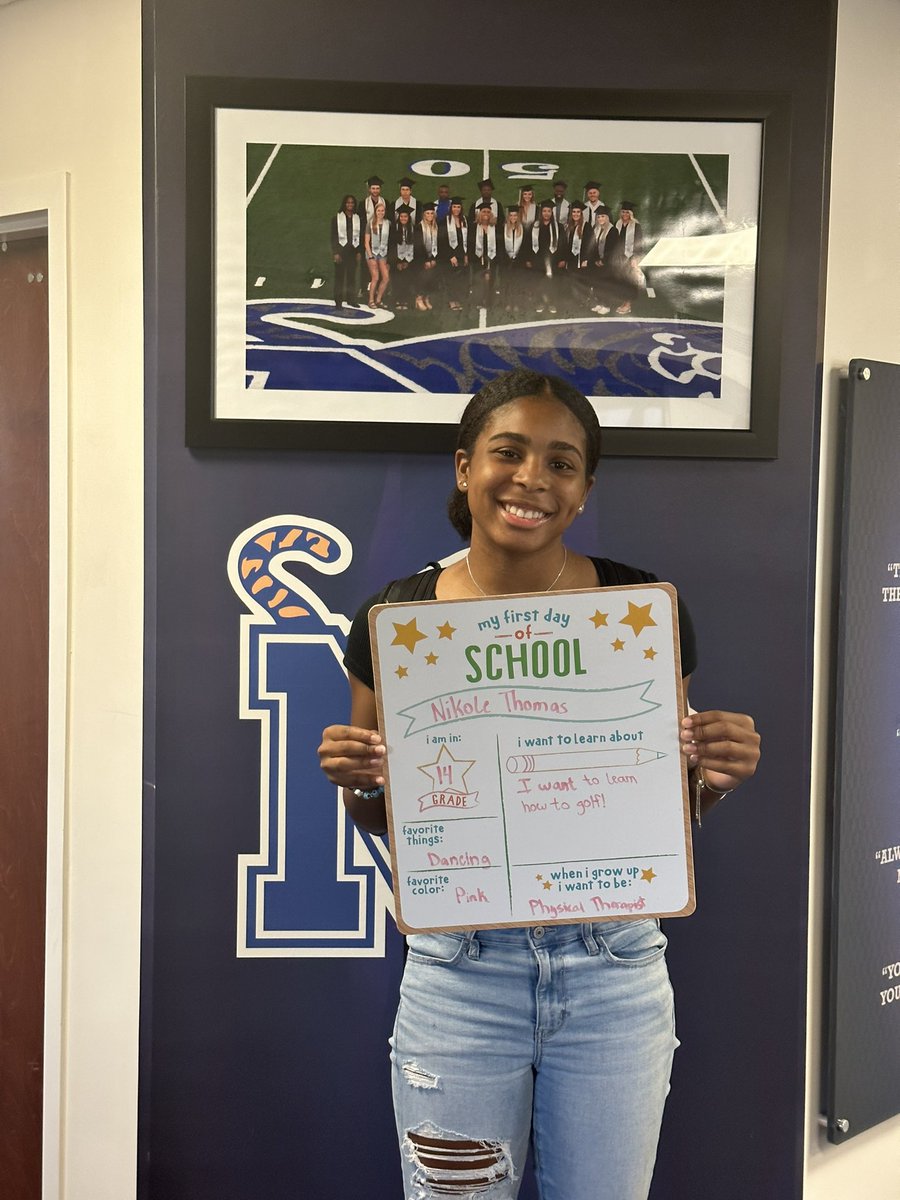 50
my first day
of
SCHOOL
Nikole Thomas
i am in:
14
GRADE
favorite
things:
Dancing
favorite
color: Pink
i want to learn about
I want to learn
how to golf!
when i grow up
i want to be:
Physical Therapist
"T
THE
"ALW
"YO
YOU